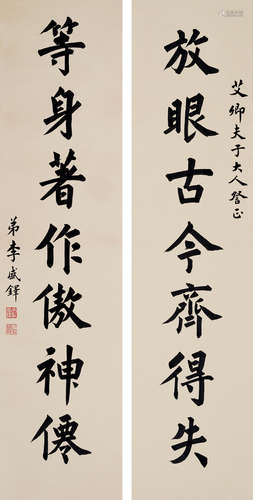 艾卿夫子大人發正
放眼古今齊得失
等身著作傲神僊
弟李盛鐸